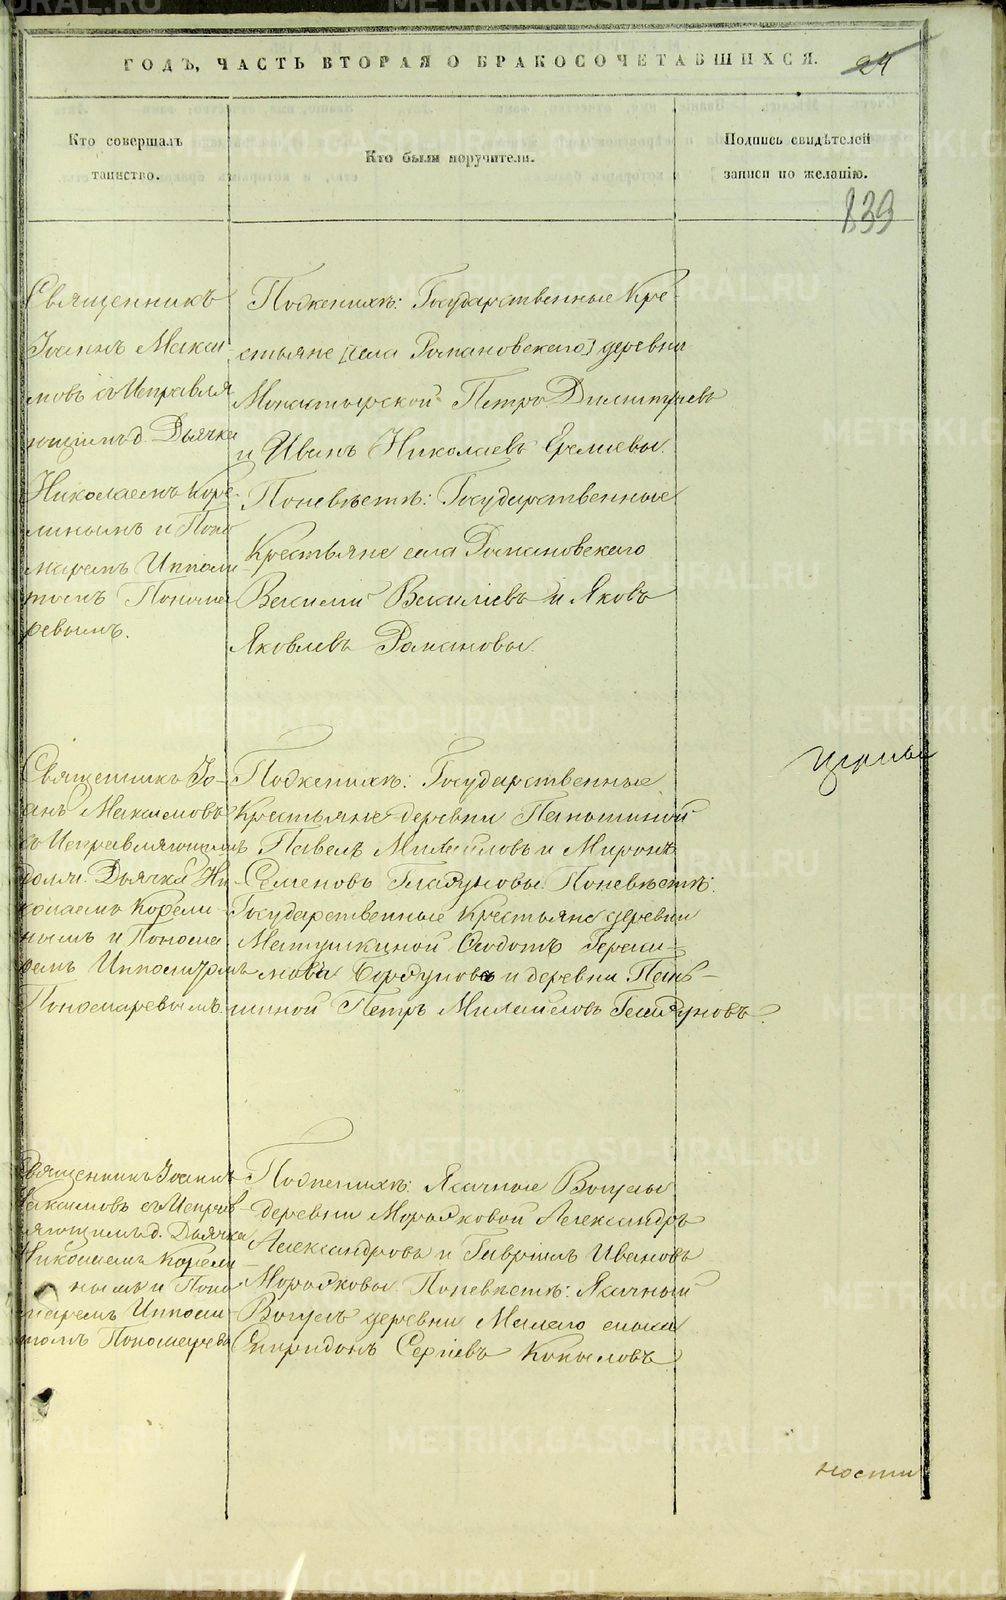 ГОДЪ, ЧАСТЬ ВТОРАЯ О БРАКОСОЧЕТАВШИХСЯ.
24
Кто совершалъ
таинство.
Кто были поручители.
Подпись свидѣтелей
записи по желанію.
839
Священникъ
Іоаннъ Макси
мовъ съ Исправля
ющимъ д. Дьячка
Николаемъ Коре-
линымъ и Поно
маремъ Иппли
томъ Понома
ревымъ.
По женихѣ: Государственные Кре-
стьяне [села Романовскаго] деревни
Монастырской Петръ Димитріевъ
и Иванъ Николаевъ Еремѣевы.
По невѣстѣ: Государственные
Крестьяне села Романовскаго
Василій Васильевъ и Яковъ
Яковлевъ Романовы.
Священникъ Іо-
анъ Максимовъ
съ Исправляющимъ
должн. Дьячка Ни-
колаемъ Корели-
нымъ и Понома
ремъ Ипполитомъ
Пономаревымъ.
По женихѣ: Государственные
Крестьяне деревни
Павелъ Михайловъ и Миронъ
Семеновъ Гладуновы. По невѣстѣ:
Государственные Крестьяне деревни
Матушкиной Ѳедотъ Гераси-
мовъ и деревни
шиной Петръ Михайловъ
Священникъ Іоаннъ
Максимовъ съ Исправ-
ляющимъ д. Дьячка
Николаемъ Корели-
нымъ и Поно
маремъ Иппли
томъ Пономаревы
По женихѣ: Ясачные Вогулы
деревни Морзяковой Александръ
Александровъ и Гаврiилъ Ивановъ
Морзяковы. По невѣстѣ: Ясачный
Вогулъ деревни Малаго
Спиридонъ Сергіевъ Копыловъ.
ности
METRIKI.GASO-URAL.RU